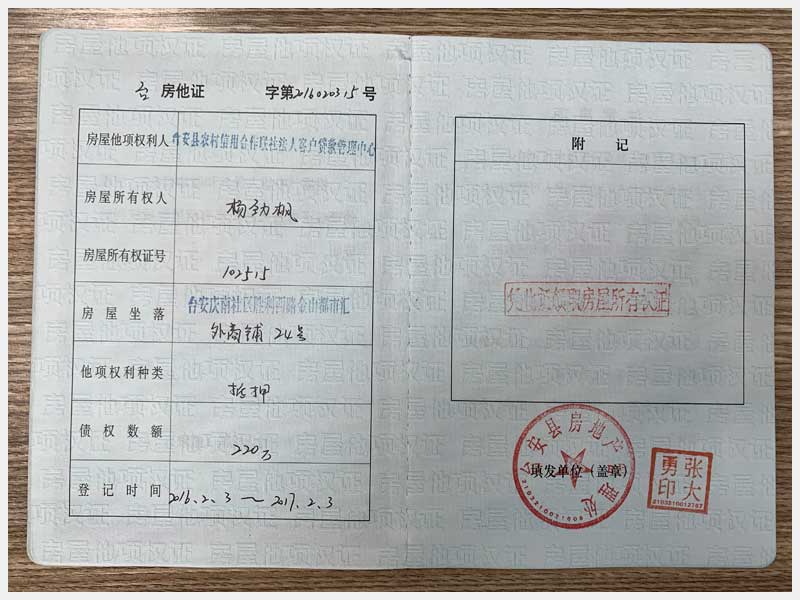 台 房他证 字第2016020315号
房屋他项权利人
台安县农村信用合作联社法人客户贷款管理中心
房屋所有权人
杨劲枫
房屋所有权证号
102515
房屋坐落
台安庆南社区胜利西路金山都市汇
外商铺 24号
他项权利种类
抵押
债权数额
220万
登记时间
2016.2.3～2017.2.3
附记
凭他证领取房屋所有权证
台安县房地产管理处
填发单位(盖章)
张大
勇印